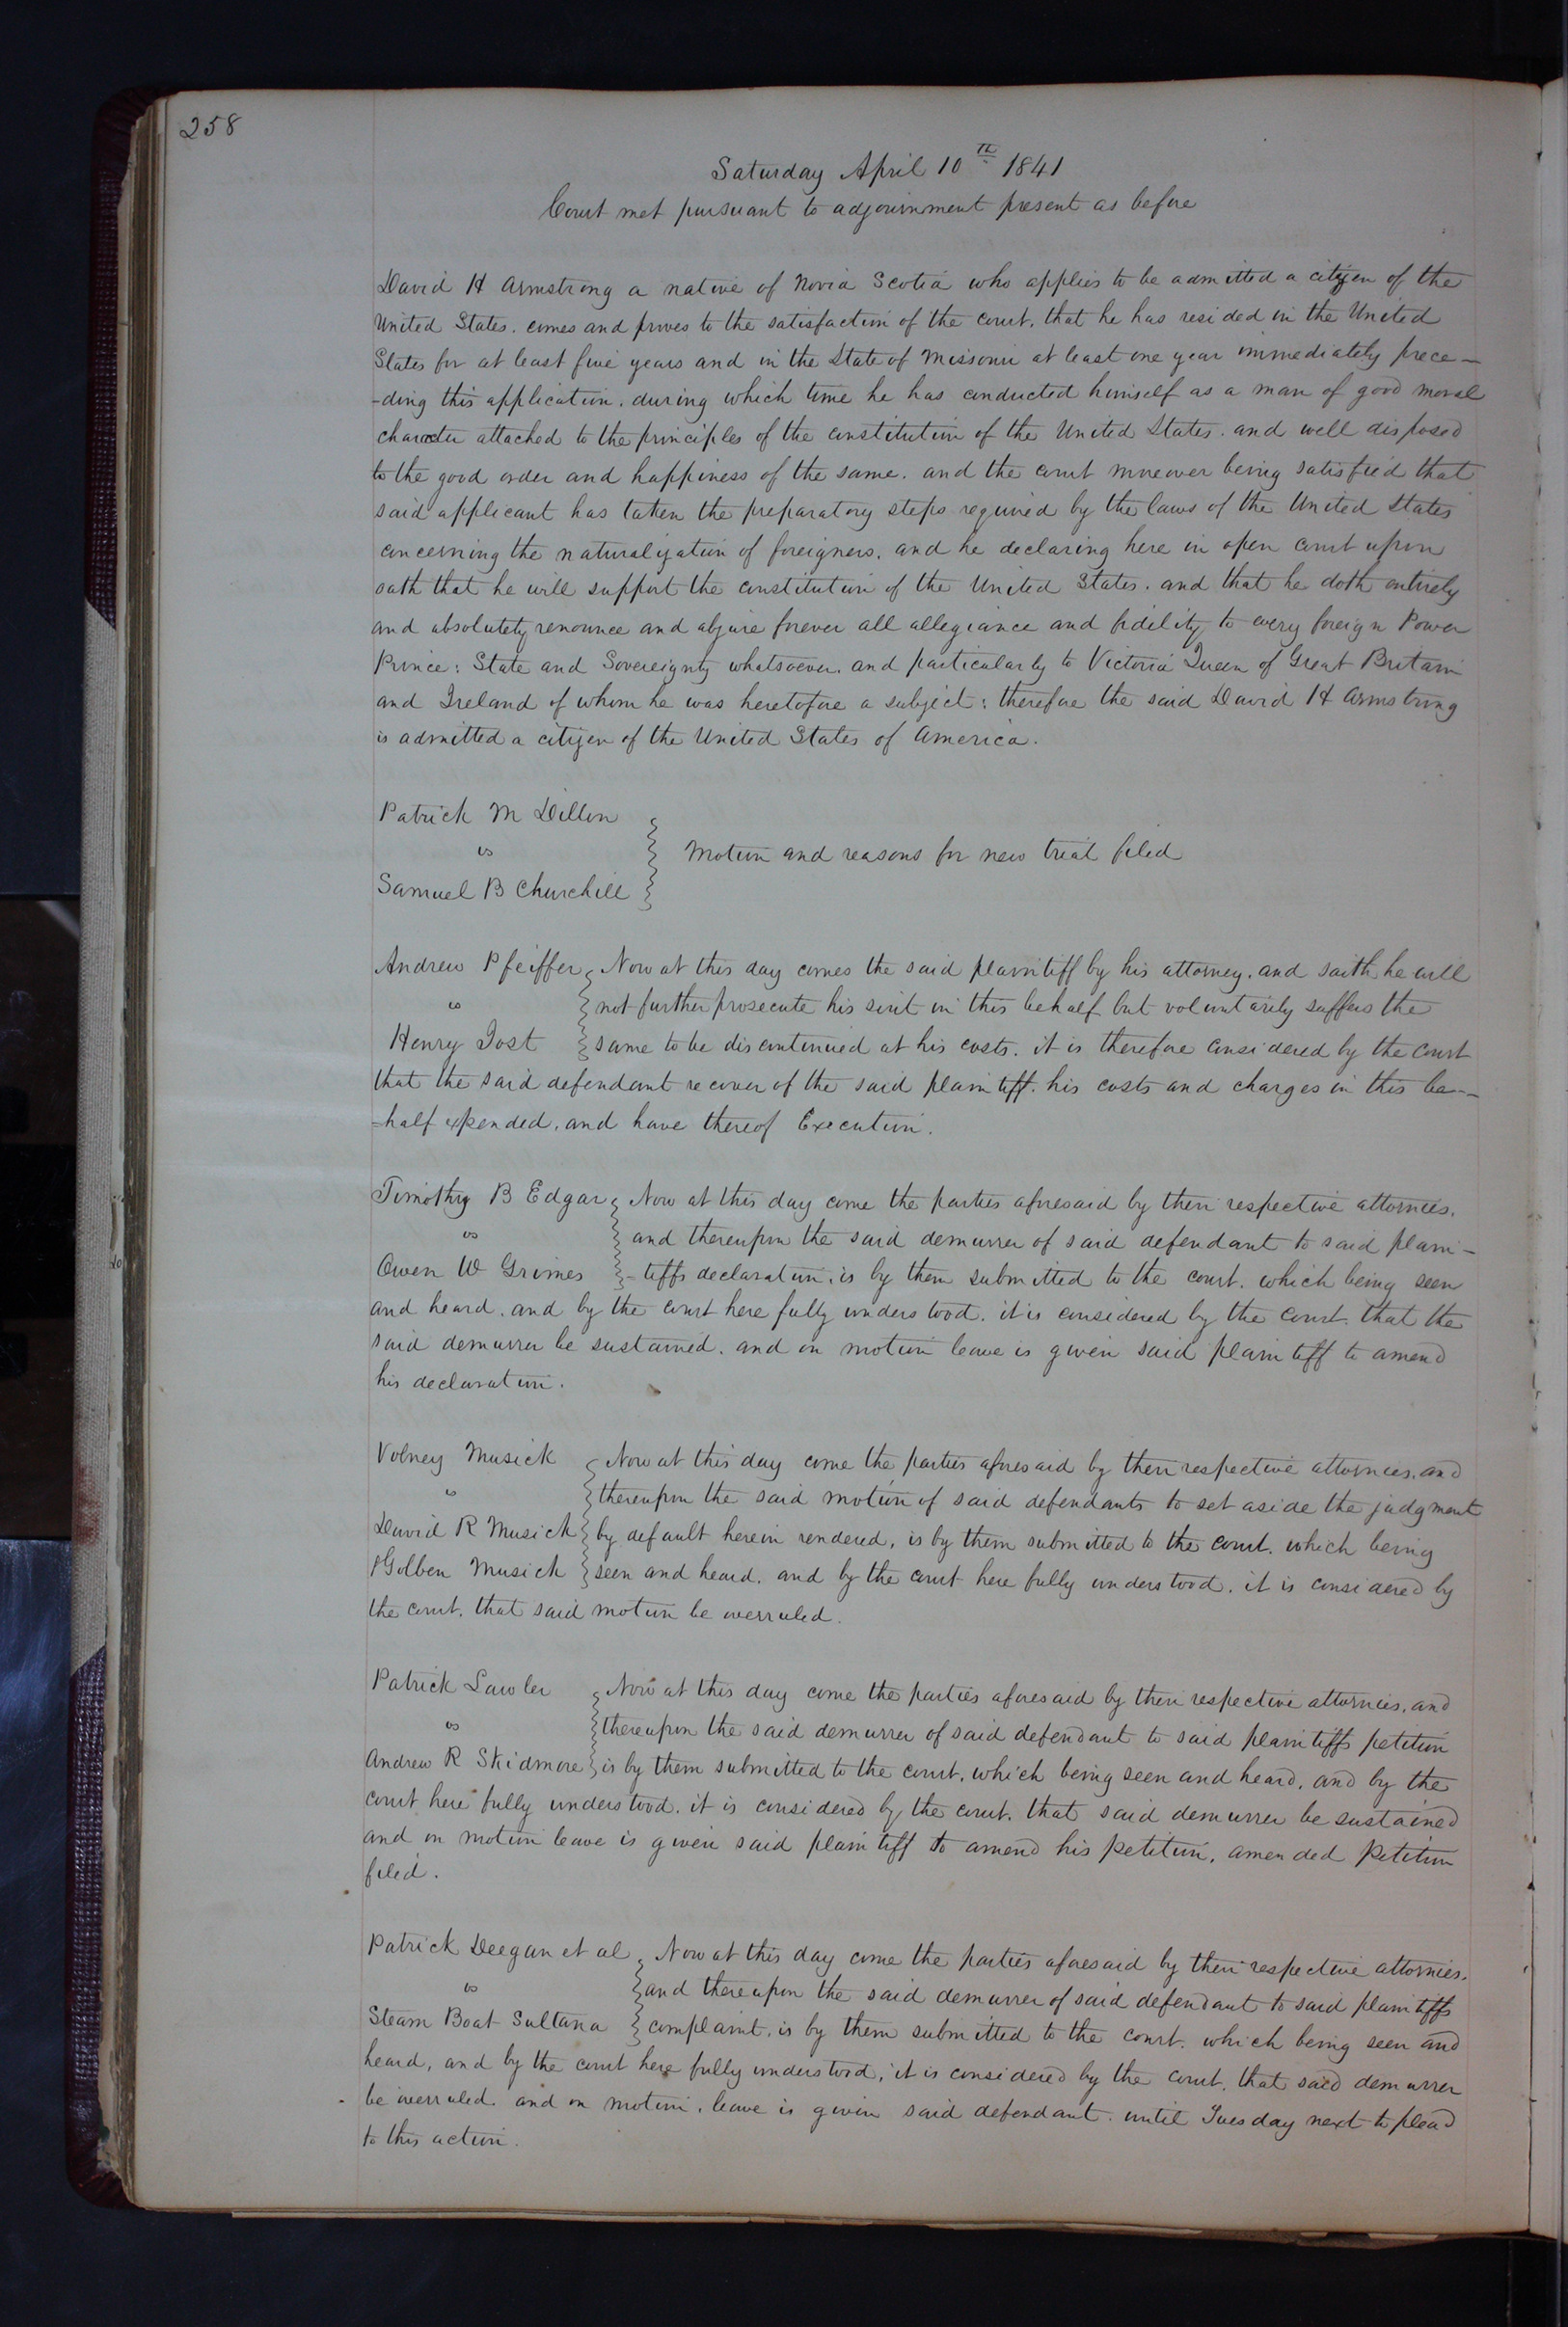 258
Saturday April 10th 1841
Court met pursuant to adjournment present as before
David H Armstrong a native of Novia Scotia who applies to be admitted a citizen of the
United States. comes and proves to the satisfaction of the court. that he has resided in the United
States for at least five years and in the State of Missouri at least one year immediately prece-
-ding this application. during which time he has conducted himself as a man of good moral
character attached to the principles of the constitution of the United States. and well disposed
to the good order and happiness of the same. and the court moreover being satisfied that
said applicant has taken the preparatory steps required by the laws of the United States
concerning the naturalization of foreigners. and he declaring here in open court upon
oath that he will support the constitution of the United States. and that he doth entirely
and absolutely renounce and abjure forever all allegiance and fidelity to every foreign Power
Prince: State and Sovereignty whatsoever. and particularly to Victoria Queen of Great Britain
and Ireland of whom he was heretofore a subject: therefore the said David H Armstrong
is admitted a citizen of the United States of America.
Patrick M Dillon
vs
Samuel B Churchill
Motion and reasons for new trial filed
Andrew Pfeiffer Now at this day comes the said plaintiff by his attorney. and saith he will
vs not further prosecute his suit in this behalf but voluntarily suffers the
Henry Jost same to be discontinued at his costs. it is therefore considered by the court
that the said defendant recover of the said plaintiff. his costs and charges in this be-
-half expended, and have thereof Execution.
Timothy B Edgar Now at this day come the parties aforesaid by their respective attornies.
vs and thereupon the said demurrer of said defendant to said plain-
Owen W Grimes -tiffs declaration. is by them submitted to the court. which being seen
and heard. and by the court here fully understood. it is considered by the court. that the
said demurrer be sustained. and on motion leave is given said plaintiff to amend
his declaration.
Volney Musick Now at this day come the parties aforesaid by their respective attornies. and
vs thereupon the said motion of said defendants to set aside the judgment
David R Musick by default herein rendered, is by them submitted to the court. which being
Musick seen and heard. and by the court here fully understood. it is considered by
the court. that said motion be overruled.
Patrick Lawler Now at this day come the parties aforesaid by their respective attornies. and
vs thereupon the said demurrer of said defendant to said plaintiffs petition
Andrew R Skidmore is by them submitted to the court. which being seen and heard, and by the
court here fully understood. it is considered by the court. that said demurrer be sustained
and on motion leave is given said plaintiff to amend his petition, amended petition
filed.
Patrick Deegan et al Now at this day come the parties aforesaid by their respective attornies.
vs and thereupon the said demurrer of said defendant to said plaintiffs
Steam Boat Sultana complaint. is by them submitted to the court. which being seen and
heard, and by the court here fully understood, it is considered by the court. that said demurrer
be overruled. and on motion. leave is given said defendant. until Tuesday next to plead
to this action.